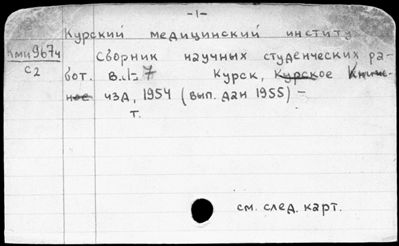 -1-
Курский медицинский институ
Кми967ч Сборник научных студенческих ра-
С2
бот. в.1-7 Курск, Курское Книж-
ное изд, 1954 (вып. дан 1955) –
т.
см. след. карт.